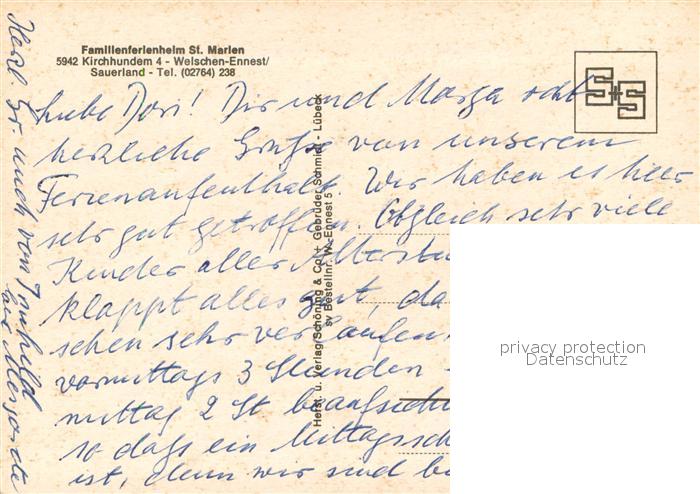 Familienferienheim St. Marien
5942 Kirchhundem 4 - Welschen-Ennest/
Sauerland - Tel. (02764) 238
S+S
Liebe Dori! Dir und Marga recht
herzliche Grüße von unserem
Ferienaufenthalt. Wir haben es hier
sehr gut getroffen. Obgleich sehr viele
Kinder aller Altersstu
klappt alles gut, da
schen sehr verlaufen
vormittags 3 Stunden
mittag 2 St beaufsicht
so daß ein Mittagssch
ist, denn wir sind be
Herzl. Gr. auch von Irmhild
Herst. u. Verlag Schöning & Co + Gebrüder Schmidt - Lübeck
sv Bestellnr. W.-Ennest 5
privacy protection
Datenschutz